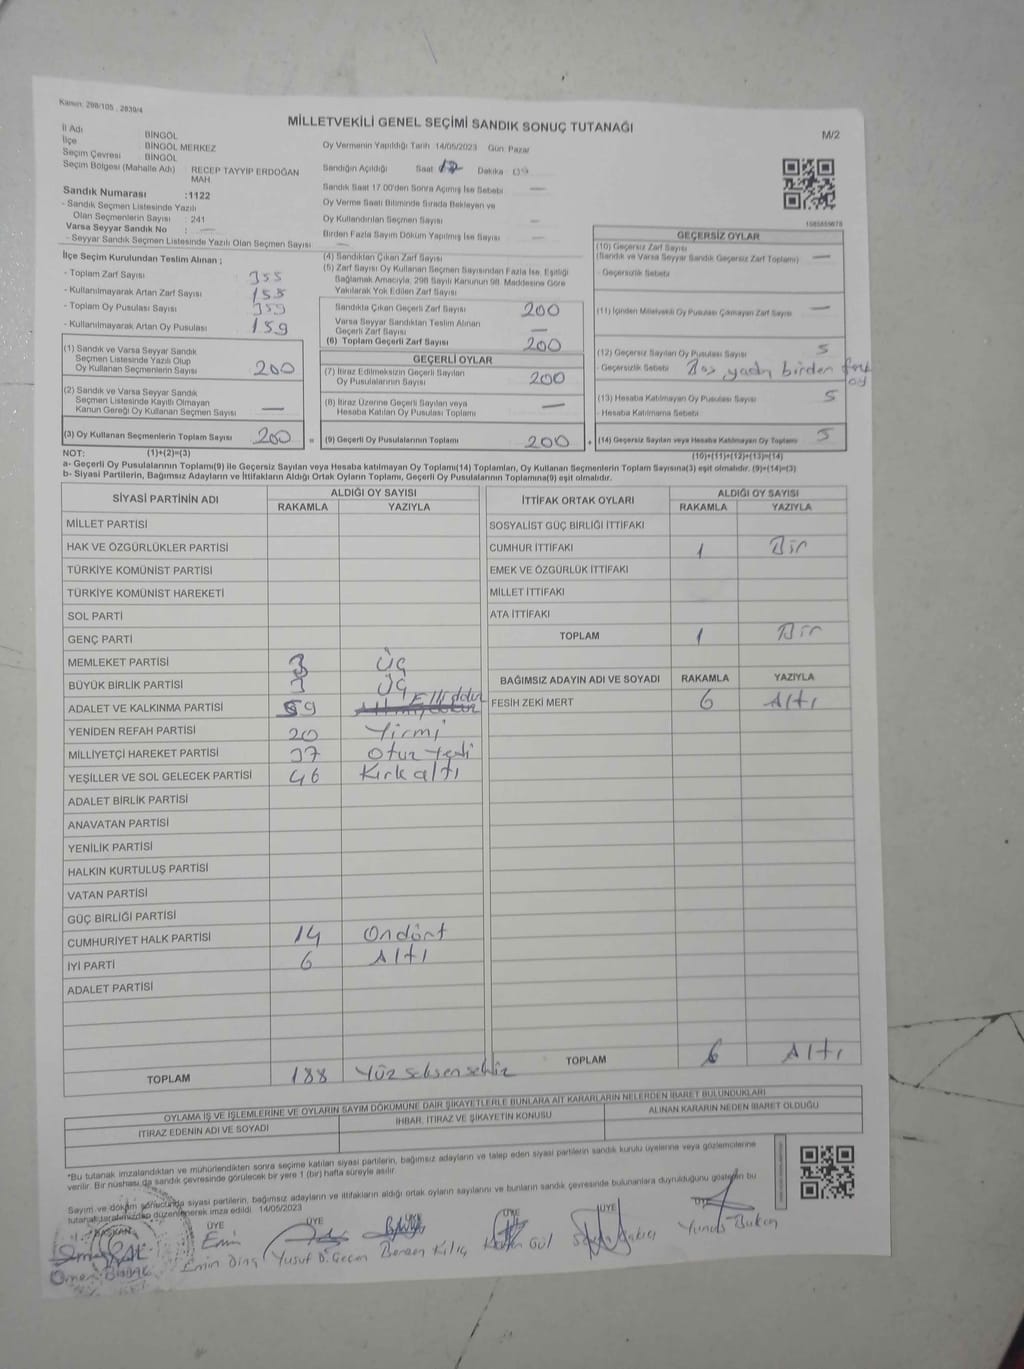 Kanun: 298/105 , 2839/4
MİLLETVEKİLİ GENEL SEÇİMİ SANDIK SONUÇ TUTANAĞI
M/2
İl Adı BİNGÖL
İlçe BİNGÖL MERKEZ
Seçim Çevresi BİNGÖL
Seçim Bölgesi (Mahalle Adı) RECEP TAYYİP ERDOĞAN MAH.
Sandık Numarası :1122
- Sandık Seçmen Listesinde Yazılı
Olan Seçmenlerin Sayısı : 241
Varsa Seyyar Sandık No : —
- Seyyar Sandık Seçmen Listesinde Yazılı Olan Seçmen Sayısı —
Oy Vermenin Yapıldığı Tarih 14/05/2023 Gün: Pazar
Sandığın Açıldığı Saat 17 Dakika
Sandık Saat 17.00'den Sonra Açımış İse Sebebi —
Oy Verme Saati Bitiminde Sırada Bekleyen ve
Oy Kullandırılan Seçmen Sayısı —
Birden Fazla Sayım Döküm Yapılmış İse Sayısı —
İlçe Seçim Kurulundan Teslim Alınan ;
- Toplam Zarf Sayısı 355
- Kullanılmayarak Artan Zarf Sayısı 155
- Toplam Oy Pusulası Sayısı 359
- Kullanılmayarak Artan Oy Pusulası 159
(1) Sandık ve Varsa Seyyar Sandık
Seçmen Listesinde Yazılı Olup
Oy Kullanan Seçmenlerin Sayısı 200
(2) Sandık ve Varsa Seyyar Sandık
Seçmen Listesinde Kayıtlı Olmayan
Kanun Gereği Oy Kullanan Seçmen Sayısı —
(3) Oy Kullanan Seçmenlerin Toplam Sayısı 200 =
(4) Sandıktan Çıkan Zarf Sayısı
(5) Zarf Sayısı Oy Kullanan Seçmen Sayısından Fazla İse, Eşitliği
Sağlamak Amacıyla, 298 Sayılı Kanunun 98. Maddesine Göre
Yakılarak Yok Edilen Zarf Sayısı
Sandıkta Çıkan Geçerli Zarf Sayısı 200
Varsa Seyyar Sandıktan Teslim Alınan
Geçerli Zarf Sayısı —
(6) Toplam Geçerli Zarf Sayısı 200
GEÇERLİ OYLAR
(7) İtiraz Edilmeksizin Geçerli Sayılan
Oy Pusulalarının Sayısı 200
(8) İtiraz Üzerine Geçerli Sayılan veya
Hesaba Katılan Oy Pusulası Toplamı —
(9) Geçerli Oy Pusulalarının Toplamı 200 +
1585859878
GEÇERSİZ OYLAR
(10) Geçersiz Zarf Sayısı
(Sandık ve Varsa Seyyar Sandık Geçersiz Zarf Toplamı) —
- Geçersizlik Sebebi
(11) İçinden Milletvekili Oy Pusulası Çıkmayan Zarf Sayısı —
(12) Geçersiz Sayılan Oy Pusulası Sayısı 5
- Geçersizlik Sebebi Boş yada birden fazla oy
(13) Hesaba Katılmayan Oy Pusulası Sayısı 5
- Hesaba Katılmama Sebebi
(14) Geçersiz Sayılan veya Hesaba Katılmayan Oy Toplamı 5
NOT: (1)+(2)=(3) (10)+(11)+(12)+(13)=(14)
a- Geçerli Oy Pusulalarının Toplamı(9) ile Geçersiz Sayılan veya Hesaba katılmayan Oy Toplamı(14) Toplamları, Oy Kullanan Seçmenlerin Toplam Sayısına(3) eşit olmalıdır. (9)+(14)=(3)
b- Siyasi Partilerin, Bağımsız Adayların ve İttifakların Aldığı Ortak Oyların Toplamı, Geçerli Oy Pusulalarının Toplamına(9) eşit olmalıdır.
SİYASİ PARTİNİN ADI ALDIĞI OY SAYISI
RAKAMLA YAZIYLA
MİLLET PARTİSİ
HAK VE ÖZGÜRLÜKLER PARTİSİ
TÜRKİYE KOMÜNİST PARTİSİ
TÜRKİYE KOMÜNİST HAREKETİ
SOL PARTİ
GENÇ PARTİ
MEMLEKET PARTİSİ 3 Üç
BÜYÜK BİRLİK PARTİSİ 3 Üç
ADALET VE KALKINMA PARTİSİ 59 Elli dokuz
YENİDEN REFAH PARTİSİ 20 Yirmi
MİLLİYETÇİ HAREKET PARTİSİ 37 Otuz Yedi
YEŞİLLER VE SOL GELECEK PARTİSİ 46 Kırk altı
ADALET BİRLİK PARTİSİ
ANAVATAN PARTİSİ
YENİLİK PARTİSİ
HALKIN KURTULUŞ PARTİSİ
VATAN PARTİSİ
GÜÇ BİRLİĞİ PARTİSİ
CUMHURİYET HALK PARTİSİ 14 Ondört
İYİ PARTİ 6 Altı
ADALET PARTİSİ
TOPLAM 188 Yüz seksen sekiz
İTTİFAK ORTAK OYLARI ALDIĞI OY SAYISI
RAKAMLA YAZIYLA
SOSYALİST GÜÇ BİRLİĞİ İTTİFAKI
CUMHUR İTTİFAKI 1 Bir
EMEK VE ÖZGÜRLÜK İTTİFAKI
MİLLET İTTİFAKI
ATA İTTİFAKI
TOPLAM 1 Bir
BAĞIMSIZ ADAYIN ADI VE SOYADI RAKAMLA YAZIYLA
FESİH ZEKİ MERT 6 Altı
TOPLAM 6 Altı
OYLAMA İŞ VE İŞLEMLERİNE VE OYLARIN SAYIM DÖKÜMÜNE DAİR ŞİKAYETLERLE BUNLARA AİT KARARLARIN NELERDEN İBARET BULUNDUKLARI
İTİRAZ EDENİN ADI VE SOYADI İHBAR, İTİRAZ VE ŞİKAYETİN KONUSU ALINAN KARARIN NEDEN İBARET OLDUĞU
*Bu tutanak imzalandıktan ve mühürlendikten sonra seçime katılan siyasi partilerin, bağımsız adayların ve talep eden siyasi partilerin sandık kurulu üyelerine veya gözlemcilerine
verilir. Bir nüshası da sandık çevresinde görülecek bir yere 1 (bir) hafta süreyle asılır.
Sayım ve döküm sonucunda siyasi partilerin, bağımsız adayların ve ittifakların aldığı ortak oyların sayılarını ve bunların sandık çevresinde bulunanlara duyrulduğunu gösteren bu
tutanak tarafımızdan düzenlenerek imza edildi. 14/05/2023
BAŞKAN ÜYE ÜYE ÜYE ÜYE ÜYE ÜYE
Emin
Ömer Emin Dinç Yusuf D. Geçen Baran Kılıç Gül Yunus Buken